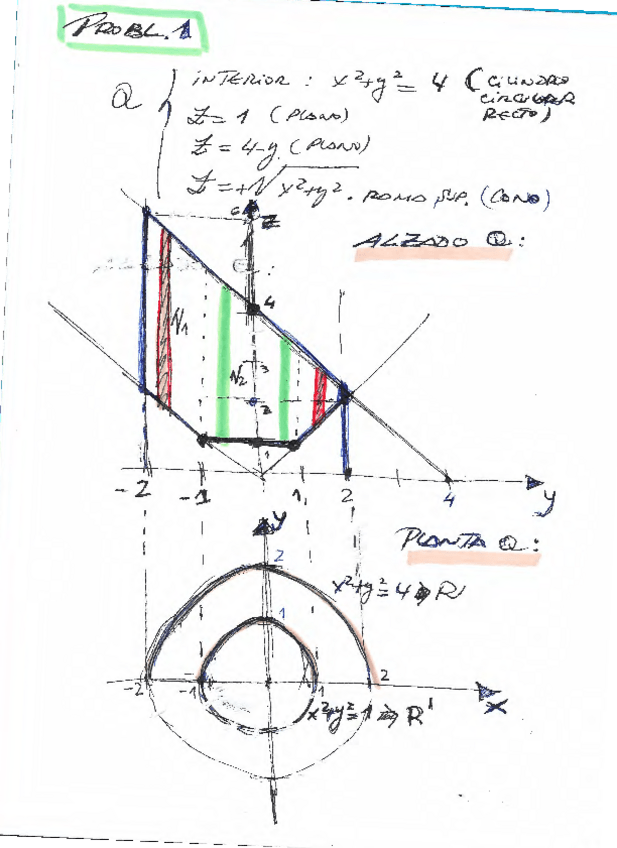 PROBL. 1
Q { INTERIOR : x²+y² = 4 (CILINDRO CIRCULAR RECTO)
Z = 1 (PLANO)
Z = 4-y (PLANO)
Z = +√x²+y² . RAMA SUP. (CONO)
ALZADO Q :
6 Z
4
V1
V2
3
2
1
-2 -1 1 2 4 y
y
PLANTA Q :
2
x²+y²=4 ⇒ R
1
-2 -1 1 2
x
x²+y²=1 ⇒ R'